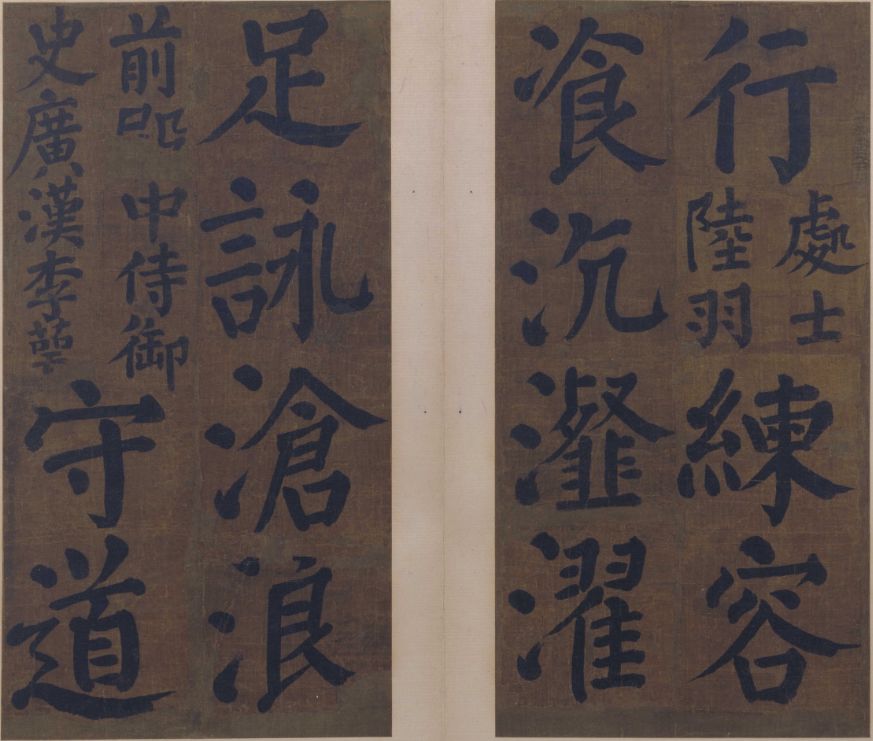 行
處士
陸羽
練容
飡沆瀣濯
足詠滄浪
前中侍御
史廣漢李萼
守道